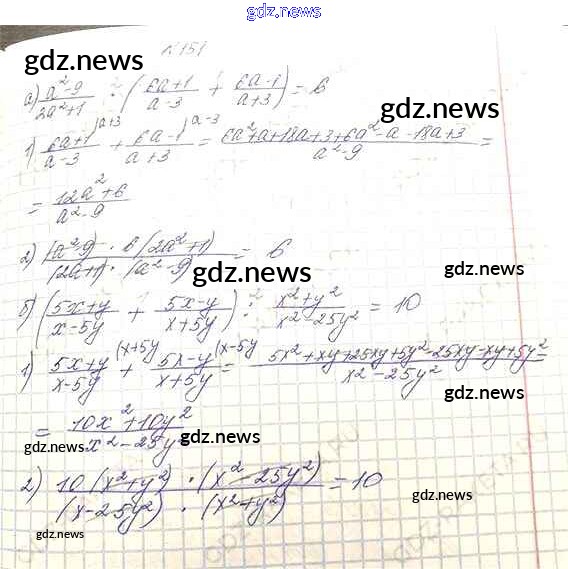 gdz.news
N151
gdz.news
а) (a²-9)/(2a²+1) : ((6a+1)/(a-3) + (6a-1)/(a+3)) = 6
gdz.news
1) (6a+1)/(a-3) |a+3 + (6a-1)/(a+3) |a-3 = (6a²+a+18a+3+6a²-a-18a+3)/(a²-9) =
= (12a²+6)/(a²-9)
2) ((a²-9) · 6(2a²+1))/((2a+1) · (a²-9)) = 6
gdz.news
gdz.news
б) ((5x+y)/(x-5y) + (5x-y)/(x+5y)) : (x²+y²)/(x²-25y²) = 10
gdz.news
1) (5x+y)/(x-5y) (x+5y + (5x-y)/(x+5y) (x-5y = (5x²+xy+25xy+5y²-25xy-xy+5y²)/(x²-25y²) =
gdz.news
= (10x²+10y²)/(x²-25y²)
gdz.news
gdz.news
2) (10(x²+y²) · (x²-25y²))/((x-25y²) · (x²+y²)) = 10
gdz.news
gdz.news